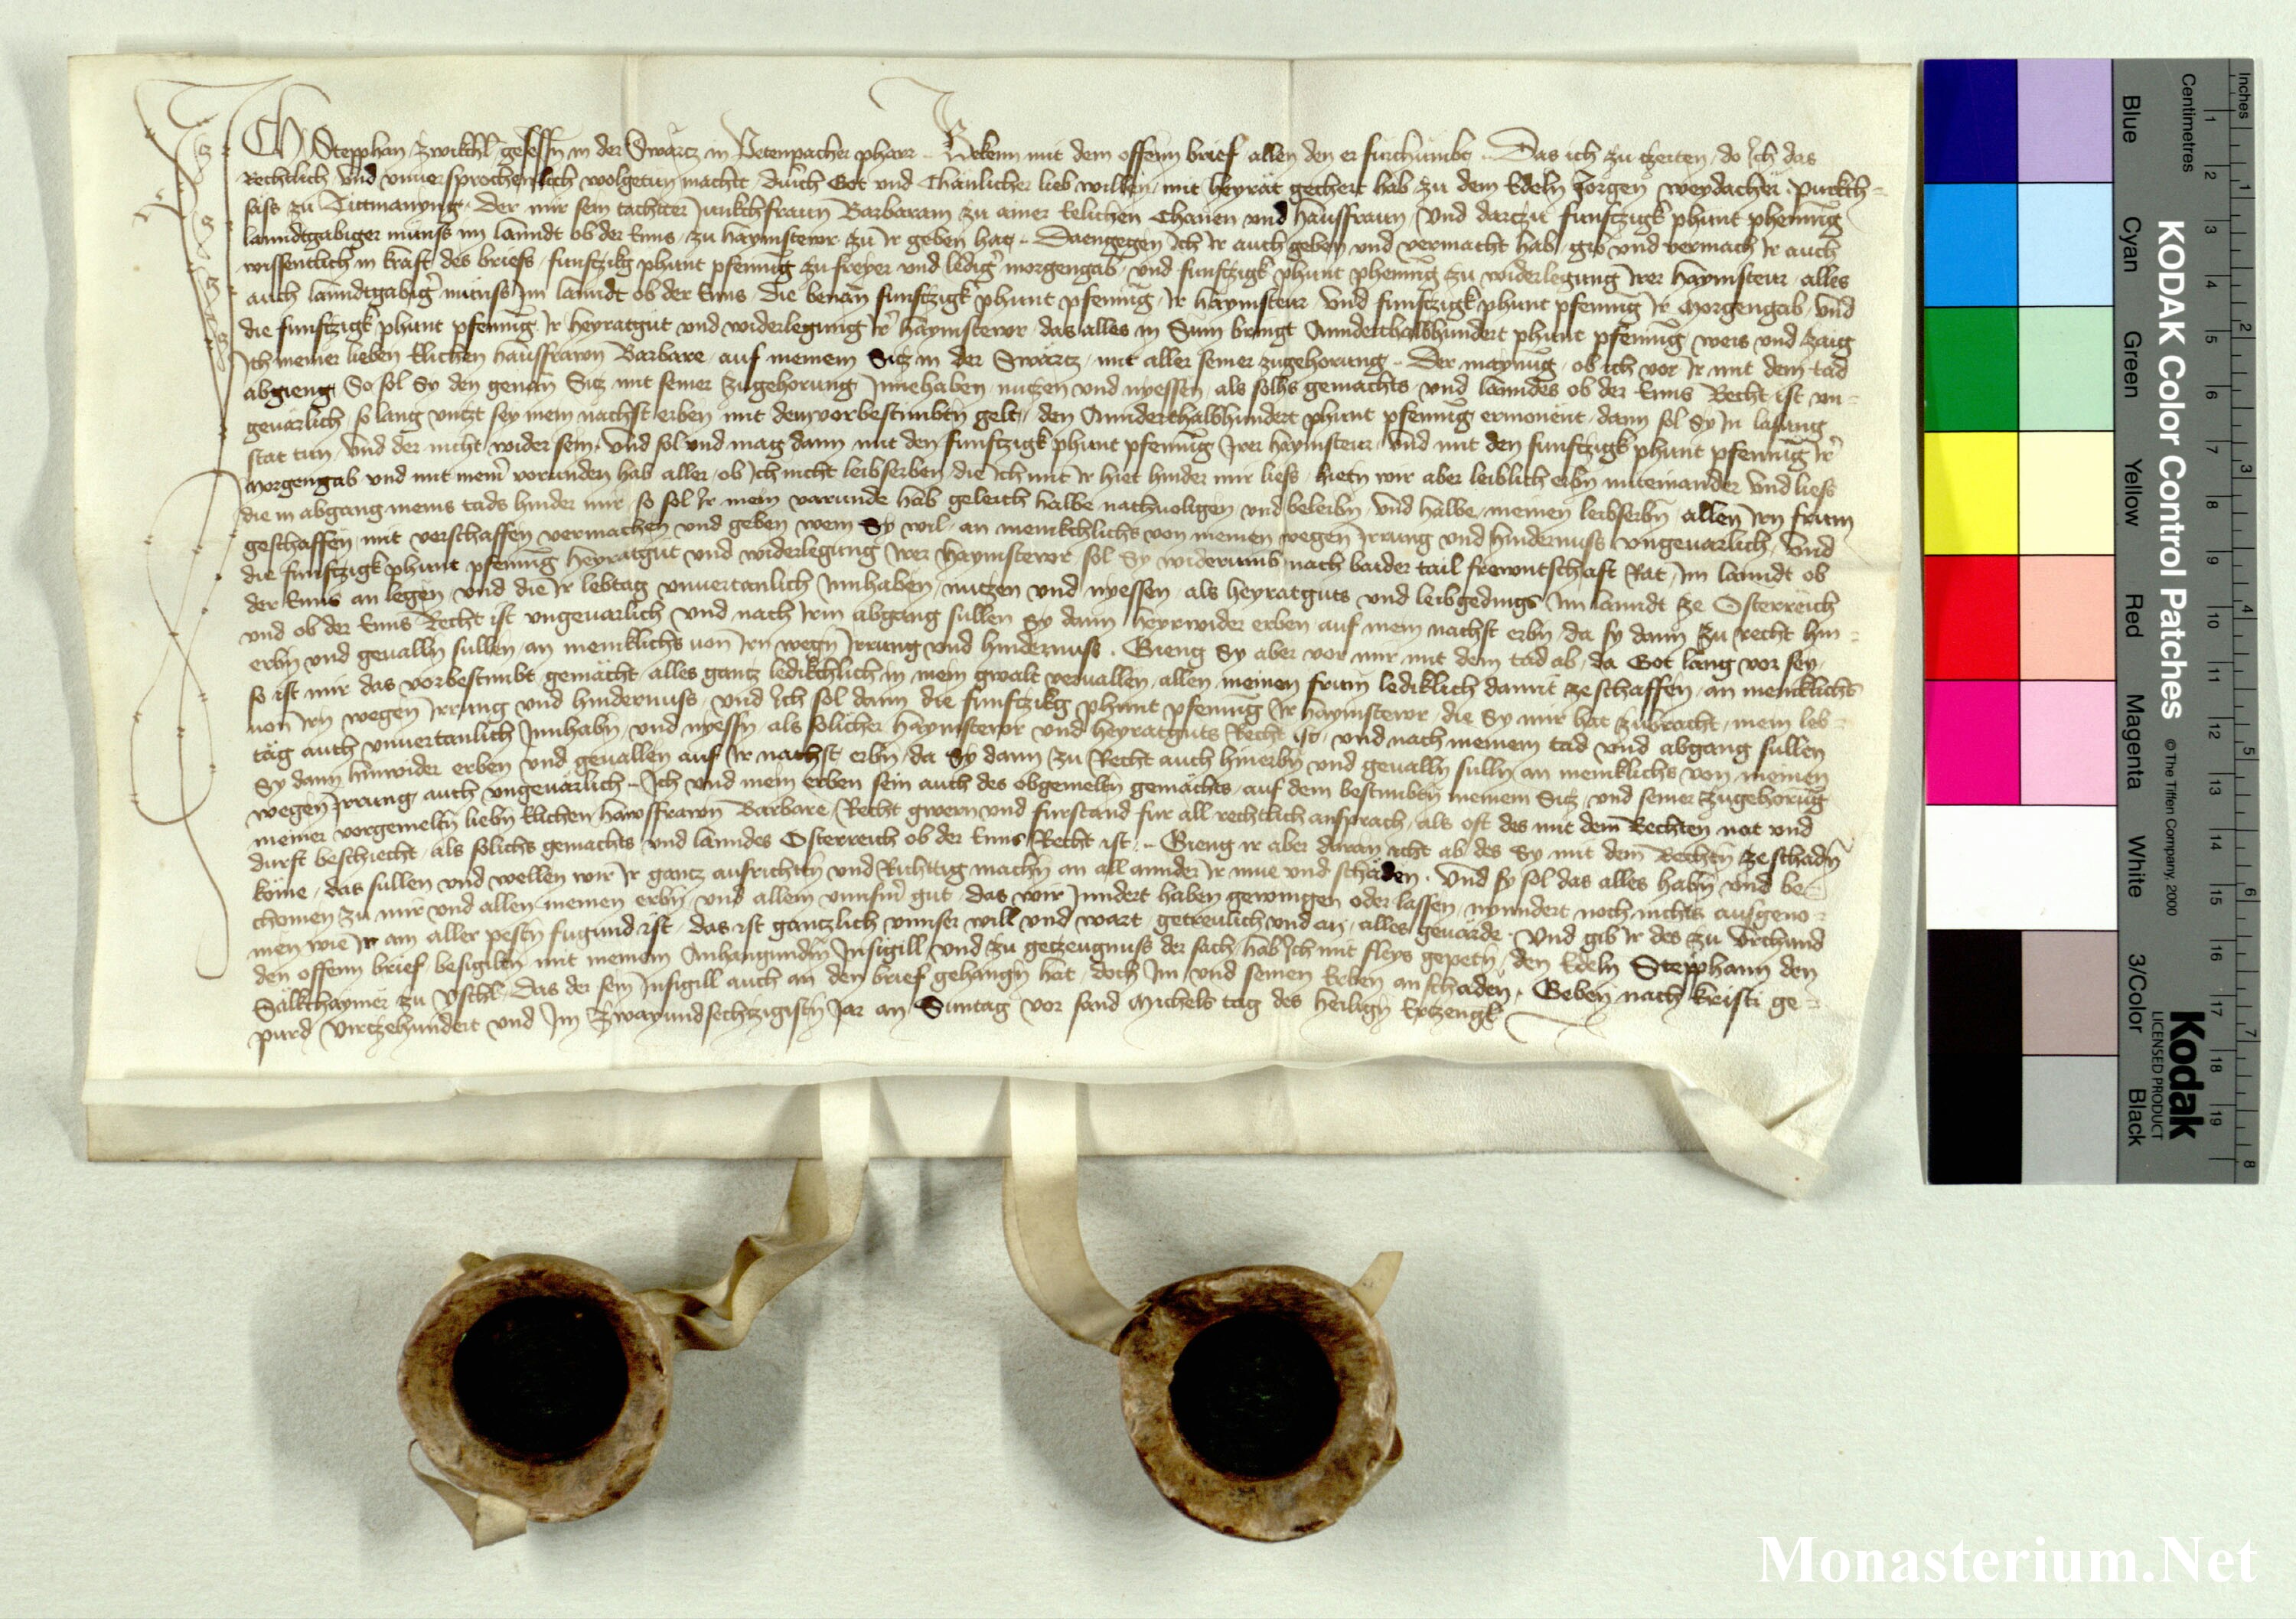 ICh Stepphan Zwikchl gesessen in der Swartz in Petenpacher pharr .. Bekenn mit dem offenn brief allen den er furchumbt .. Das ich zu tzeiten do Ich das
Rechtlich und unuersprochenlich wolgetun macht durich Got und Chanlicher lieb willen mit heyrat gechert hab zu dem Edeln Jorgen weydacher purkch=
sass zu Titmanyng Der mir sein tachter Junkchfraun Barbaram zu ainer Eelichen Chanen und haussfraun Und dartzu funftzigk phunt phenning
lanndtgabiger munss im lanndt ob der Enns zu haymstewr zu Ir geben hat .. Daengegen Ich Ir auch geben und vermacht hab gib und vermach Ir auch
wissentlich in kraft des briefs funftzikg phunt pfennig zu freyer und ledigr morgengab und funftzigk phunt phennig zu widerlegung Irer haymsteur alles
auch lanndtgabigr munss Im lanndt ob der Enns Die benan funftzigk phunt pfennig Ir haymsteur Und funftzigk phunt pfennig Ir Morgengab und
die funftzigk phunt pfennig Ir heyratgut und widerlegung Ir haymstewr das alles in Sum bringt Annderthalbhundert phunt pfennig weis und zaig
Ich meiner lieben Elichen haussfrawn Barbare auf meinem Sitz in der Swartz mit aller seiner zugehorung .. Der maynug ob ich vor Ir mit dem tad
abgieng So sol Sy den genan Sitz mit seiner zugehorung Innehaben nutzen und nyessen als solhs gemachts und lanndes ob der Enns Recht ist un=
geuarlich so lang untzt sey mein nachst erben mit dem vorbestimbtn gelt den Annderthalbhundert phunt pfennig ermonent dann sol Sy In lasung
stat tun und der nicht wider sein Und sol und mag dann mit den funftzigk phunt pfennig Irer haymsteur und mit den funftzigk phunt pfennig Ir
Morgengab und mit meinr vorunden hab aller ob Ich nicht leibserben die Ich mit Ir hiet hinder mir liess hietn wir aber leiblich erbn miteinander und liess
die in abgang meins tads hinder mir so sol Ir mein varunde hab geleich halbe nachuolgen und beleibn und halbe meinen leibserbn allen Irn frum
geschaffen mit verschaffen vermachen und geben wem Sy wil an menikchlichs von meinen wegen Irrung und hindernuss ungeuarlich Und
die funftzigk phunt pfennig heyratgut und widerlegung Irer haymstewr sol Sy widerumb nach baider tail frewntschaft Rat Im lanndt ob
der Enns an legen und die Ir lebtag unuertanlich Innhaben nutzen und nyessen als heyratguts und leibgedings Im lanndt ze Osterreich
und ob der Enns Recht ist ungeuarlich und nach Irm abgang sullen Sy dann herwider erben auf mein nachst erbn da sy dann zu recht hin=
erbn und geualln sullen an meniklichs von Irn wegn Irrung und hindernuss . Gieng Sy aber vor mir mit dem tad ab da Got lang vor sey
so ist mir das vorbestimbt gemacht alles gantz ledikchlich in mein gwalt veruallen allen meinen frum lediklich damit ze schaffen an meniklichs
von Irn wegen Irrung und hindernuss und Ich sol dann die funftzikg phunt pfennig Ir haymstewr die Sy mir hat zubracht mein leb=
tag auch unuertanlich Innhabn und nyessn als solicher haymstewr und heyratguts Recht ist und nach meinem tad und abgang sullen
Sy dann hinwider erben und geuallen auf Ir nachst erbn da Sy dann zu Recht auch hinerbn und gealln sulln an meniklichs von meinen
wegen Irrung auch ungeuarlich .. Ich und mein erben sein auch des obgemeltn gemachts auf dem bestimbtn meinem Sitz und seiner zugehorug
meiner vorgemeltn liebn Elichen hawsfrawn Barbare Recht gwern und furstand fur all rechtlich ansprach als oft des mit dem Rechten not und
durft beschiecht als solichs gemachts und lanndes Osterreich ob der Enns Recht ist .. Gieng ir aber daran icht ab des Sy mit dem Rechtn ze schadn
kome das sullen und wellen wir Ir gantz ausrichten und Richttig machn an all annder Ir mue und schaden . Und sy sol das alles habn und be=
chomen zu mir und allen meinen erbn und allem unnserm gut das wir Inndert haben gewingen oder lassen nynndert noch nichts ausgeno=
men wie Ir am aller pestn fugund ist das ist gantzlich unnser will und wart getreulich und an alles geuarde Und gib Ir des zu Urchund
den offenn brief besigiltn mit meinem Anhangundm Insigill und zu getzeugnuss der sach hab Ich mit fleys gepetn den Edeln Stepphann den
Salkchaymer zu Yschl Das der sein Insigill auch an den brief gehangn hat doch Im und seinen Erben an schaden . Geben nach Kristi ge=
purd Virtzehundert und Im Zwayundsechtzigistn Jar an Suntag vor sand Michels tag des heiligen Ertzengl
Inches
Centimetres
KODAK Color Control Patches
© The Tiffen Company, 2000
Kodak
LICENSED PRODUCT
Blue
Cyan
Green
Yellow
Red
Magenta
White
3/Color
Black
1 2 3 4 5 6 7 8 9 10 11 12 13 14 15 16 17 18 19
1 2 3 4 5 6 7 8
Monasterium.Net